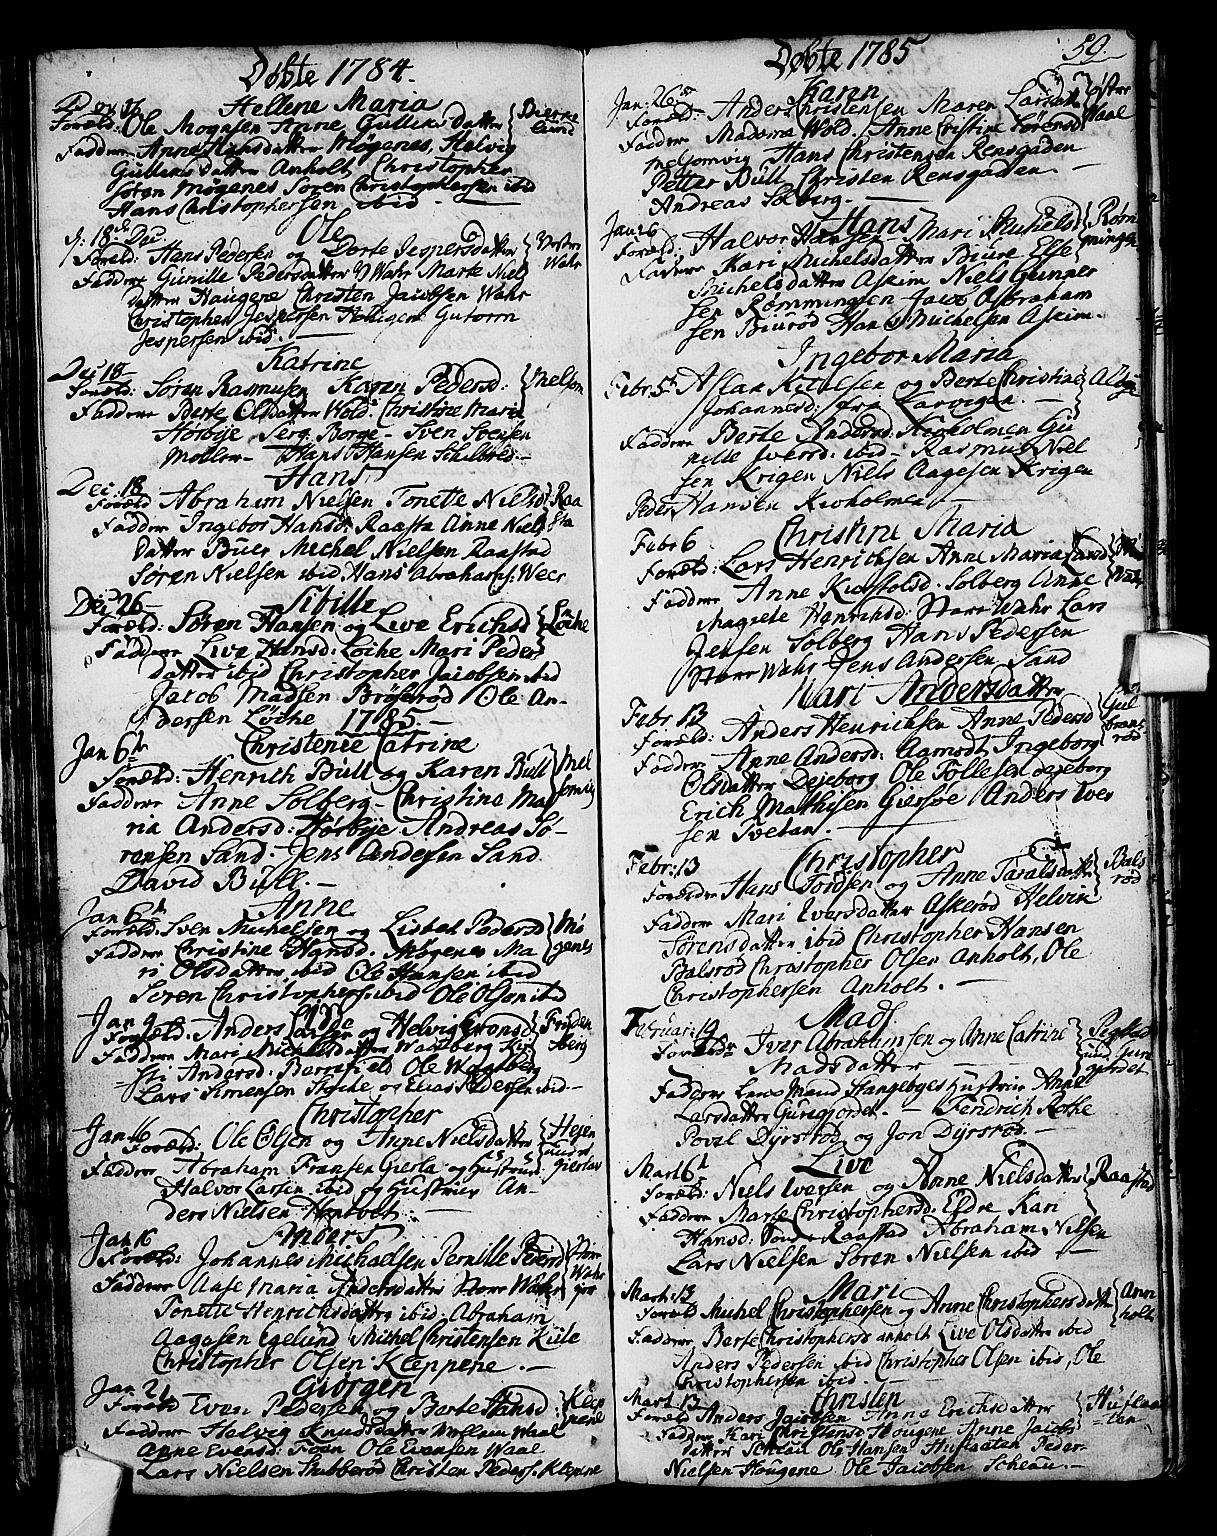 Døbte 1784.
Hellene Maria
Foræld: Ole Mogensen Anne Gulliksdatter
Faddere Anne Hansdatter Møgenes, Helvig
Gulliksdatter Anholt Christopher
Søren Møgenes Søren Christophersen ibid
Hans Christophersen ibid —
Ole
18de Dec
Foræld: Hans Pedersen og Dorte Jespersdatter Wester Wahr
Faddere Gunille Pedersdatter Wahr Marte Niels
datter Haugene Christen Jacobsen Wahr
Christopher Jespersen Guttorm
Jespersen ibid.
Katrine
Dec 18
Foræld: Søren Rasmusen Karen Pedersd: Melsom
Faddere Berte Olsdatter Wold. Christine Maria
Hørbye Serg. Borge — Sven Svensen
Møller — Hans Hansen —
Hans
Dec: 18
Foræld Abraham Nielsen Tonette Nielsd Raa sta
Faddere Ingebor Hansd: Raasta Anne Niels
datter Buer Michel Nielsen Raastad
Søren Nielsen ibid Hans Abrahams: Weer
Sibille
Dec 26
Foræld: Søren Hansen og Live Erichsd Løche
Faddere Live Hansd: Løche Mari Peders
datter ibid Christopher Jacobsen ibid
Jacob Madsen Brøserød Ole An-
dersen Løche 1785. —
Christence Catrine
Jan 6th
Foræld: Henrich Bull og Karen Bull Mel somvig
Faddere Anne Solberg — Christine Ma
ria Andersd: Hørbye Andreas Sø-
rensen Sand. Jens Andersen Sand.
David Bull. —
Anne
Jan 6th
Foræld: Sven Michelsen og Lisbet Pedersd Mø genes
Faddere Christine Hansd. Møgenes Ma
ri Olsdatter ibid Ole Hansen ibid
Søren Christophers: ibid Ole Olsen ibid
Jan 9
Foræld: Anders Larsen og Helvig
Faddere Mari Michelsdatter Waalberg
sti Andersd: Ole Waalberg
Lars Simensen og Evas Pedersen ibid —
Christopher
Jan 16
Foræld: Ole Olsen og Anne Nielsdatter Hejen under Gierla
Faddere Abraham Fransen Gierla og Hustrue
Halvor Larsen ibid og Hustrue An-
ders Nielsen
Anders
Jan 16
Foræld: Johannes Michaelsen Pernille Pedersd
Faddere Anne Maria Andersdatter Store Wahr
Tonette Henrichsdatter ibid Abraham
Aagesen Egelund Michel Christensen Kiile
Christopher Olsen Kleppene. —
Giørgen
Jan 21
Foræld Even Pedersen og Barte Hansd: Klep pene
Faddere Helvig Knudsdatter Mellum Waal
Anne Evensd: Foen Ole Evensen Waal
Lars Nielsen Stubberød Christen Peders: Kleppene
Døbte 1785
59.
Karen
Jan: 26
Foræld: Anders Christensen Maren Larsdatt Øster Waal
Faddere Madame Wold. Anne Cristine Sørensd
Melsomvig Hans Christensen Rensgaden
Petter Bull Christen Rensgaden. —
Andreas Solberg. —
Hans
Jan 26
Foræld: Halvor Hansen — Mari Michelsd Røm mingen
Faddere Kari Michelsdatter Biure Else
Michelsdatter Askim Niels Gunner
sen Rømmingen Jacob Abraham
sen Biurød Hans Michelsen Askim —
Ingebor Maria
Febr: 5
Aslak Kittelsen og Berte Christine
Johannesd: fra Larvigen. —
Faddere Berte Andersd: Kioholmen Gu
nille Iversd: ibid — Rasmus Niel
sen Krigen Niels Aagesen Krigen
Peder Hansen Kioholmen —
Christine Maria
Febr 6
Foræld: Lars Henrichsen Anne Maria Larsd
Faddere Anne Kiøstolsd: Solberg Anne
Magrete Henriksd: Store Wahr Lars
Jensen Solberg Hans Pedersen
Store Wahr Jens Andersen Sand
Kari Andersdatter
Febr 13
Foræld: Anders Henrichsen Anne Pedersd Gul brans rød
Faddere Anne Andersd: Aamodt Ingeborg
Olsdatter Dejeborg Ole Tollefsen dejeborg
Erich Mathisen Giersøe Anders Iver
sen Tvetan. —
Christopher
Febr: 13
Forældre Hans Tordsen og Anne Taralsdatter Bals rød
Faddere Mari Iversdatter Askerød Helvig
Sørensdatter ibid Christopher Hansen
Balsrød Christopher Olsen Anholt, Ole
Christophersen Anholt. —
Mads
Februar: 19
Forældre Iver Abrahamsen og Anne Catrine
Madsdatter —
Faddere Lars Mand Haugebyes Hustrue Anne
Larsdatter Guregjordet. — Fendrich Rothe
Povel Dyrsrød og Jon Dyrsrød. —
Live
Mart 6
Foræld: Niels Iversen og Anne Nielsdatter Raastad
Faddere Marte Christophersd: Eldre Kari
Hansd: Raastad Abraham Nilsen
Lars Nielsen Søren Nielsen ibid —
Mari
Mart: 13
Foræld Michel Christophersen og Anne Christophersdatt Ann holt
Faddere Barte Christophersd anholt Live Olsdatter ibid
Anders Pedersen ibid Christopher Olsen ibid, Ole
Christophersen ibid. —
Christen
Mart 13
Foræld Anders Jacobsen Anne Erichsdatter
Faddere Kari Christensd Haugene Anne Jacobs
datter Scheau Ole Hansen Huslaaten Peder
Nielsen Haugene Ole Jacobsen Scheau. —